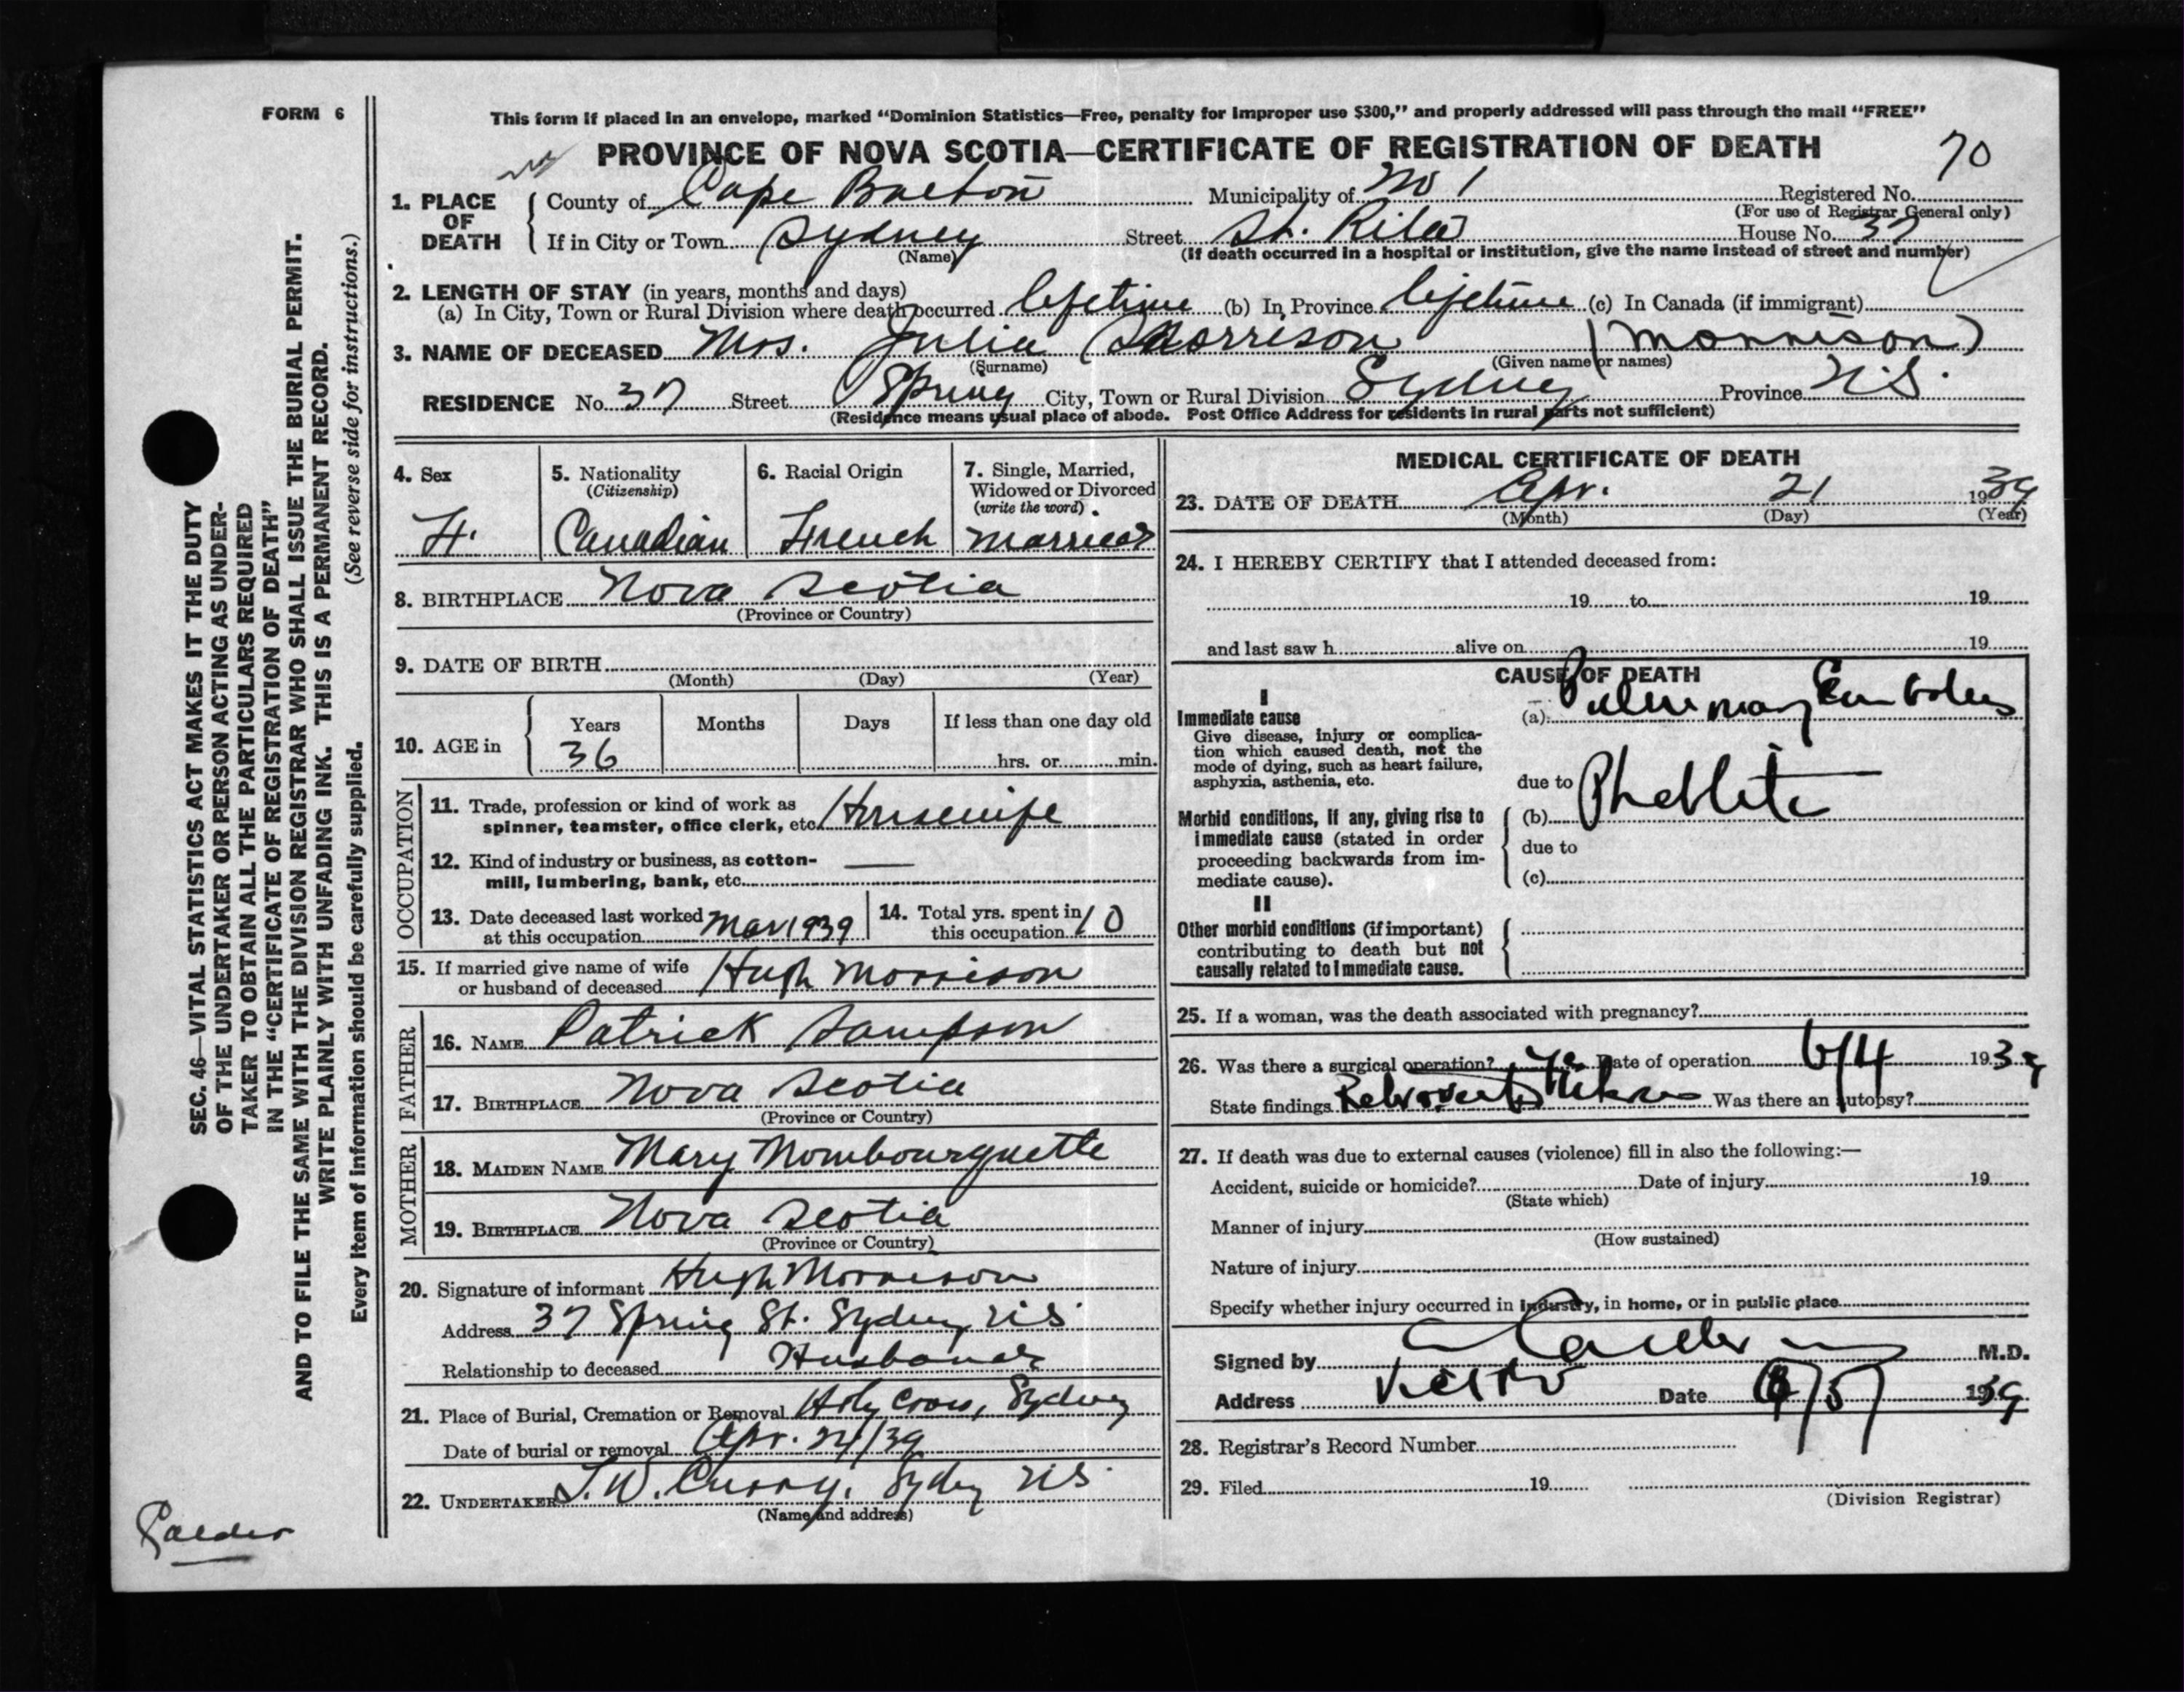 FORM 6
This form if placed in an envelope, marked "Dominion Statistics—Free, penalty for improper use $300," and properly addressed will pass through the mail "FREE"
PROVINCE OF NOVA SCOTIA—CERTIFICATE OF REGISTRATION OF DEATH
70
1. PLACE OF DEATH
County of Cape Breton Municipality of No 1 Registered No.
(For use of Registrar General only)
If in City or Town Sydney Street St. Rita House No. 37
(Name) (If death occurred in a hospital or institution, give the name instead of street and number)
2. LENGTH OF STAY (in years, months and days)
(a) In City, Town or Rural Division where death occurred lifetime (b) In Province lifetime (c) In Canada (if immigrant)
3. NAME OF DECEASED Mrs. Julia (Morrison (Morrison)
(Surname) (Given name or names)
RESIDENCE No. 37 Street Spring City, Town or Rural Division Sydney Province N.S.
(Residence means usual place of abode. Post Office Address for residents in rural parts not sufficient)
4. Sex
F.
5. Nationality
(Citizenship)
Canadian
6. Racial Origin
French
7. Single, Married,
Widowed or Divorced
(write the word)
Married
8. BIRTHPLACE Nova Scotia
(Province or Country)
9. DATE OF BIRTH
(Month) (Day) (Year)
10. AGE in
Years Months Days If less than one day old
36 hrs. or min.
OCCUPATION
11. Trade, profession or kind of work as
spinner, teamster, office clerk, etc. Housewife
12. Kind of industry or business, as cotton-
mill, lumbering, bank, etc. —
13. Date deceased last worked
at this occupation Mar 1939
14. Total yrs. spent in
this occupation 10
15. If married give name of wife
or husband of deceased Hugh Morrison
FATHER
16. NAME Patrick Sampson
17. BIRTHPLACE Nova Scotia
(Province or Country)
MOTHER
18. MAIDEN NAME Mary Mombourquette
19. BIRTHPLACE Nova Scotia
(Province or Country)
20. Signature of informant Hugh Morrison
Address 37 Spring St. Sydney N.S.
Relationship to deceased Husband
21. Place of Burial, Cremation or Removal Holy Cross, Sydney
Date of burial or removal Apr. 24/39
22. UNDERTAKER T.W. Curry, Sydney NS.
(Name and address)
MEDICAL CERTIFICATE OF DEATH
23. DATE OF DEATH Apr. 21 1939
(Month) (Day) (Year)
24. I HEREBY CERTIFY that I attended deceased from:
19 to 19
and last saw h alive on 19
CAUSE OF DEATH
I
Immediate cause
Give disease, injury or complica-
tion which caused death, not the
mode of dying, such as heart failure,
asphyxia, asthenia, etc.
(a) Pulmonary Embolus
due to
Morbid conditions, if any, giving rise to
immediate cause (stated in order
proceeding backwards from im-
mediate cause).
(b) Phlebitis
due to
(c)
II
Other morbid conditions (if important)
contributing to death but not
causally related to immediate cause.
25. If a woman, was the death associated with pregnancy?
26. Was there a surgical operation? Yes Date of operation 6/4 1939
State findings Retroverted Uterus Was there an autopsy?
27. If death was due to external causes (violence) fill in also the following:—
Accident, suicide or homicide? Date of injury 19
(State which)
Manner of injury
(How sustained)
Nature of injury
Specify whether injury occurred in industry, in home, or in public place
Signed by M.D.
Address Date 1939
28. Registrar's Record Number
29. Filed 19
(Division Registrar)
SEC. 46—VITAL STATISTICS ACT MAKES IT THE DUTY
OF THE UNDERTAKER OR PERSON ACTING AS UNDER-
TAKER TO OBTAIN ALL THE PARTICULARS REQUIRED
IN THE "CERTIFICATE OF REGISTRATION OF DEATH"
AND TO FILE THE SAME WITH THE DIVISION REGISTRAR WHO SHALL ISSUE THE BURIAL PERMIT.
WRITE PLAINLY WITH UNFADING INK. THIS IS A PERMANENT RECORD.
Every item of information should be carefully supplied. (See reverse side for instructions.)